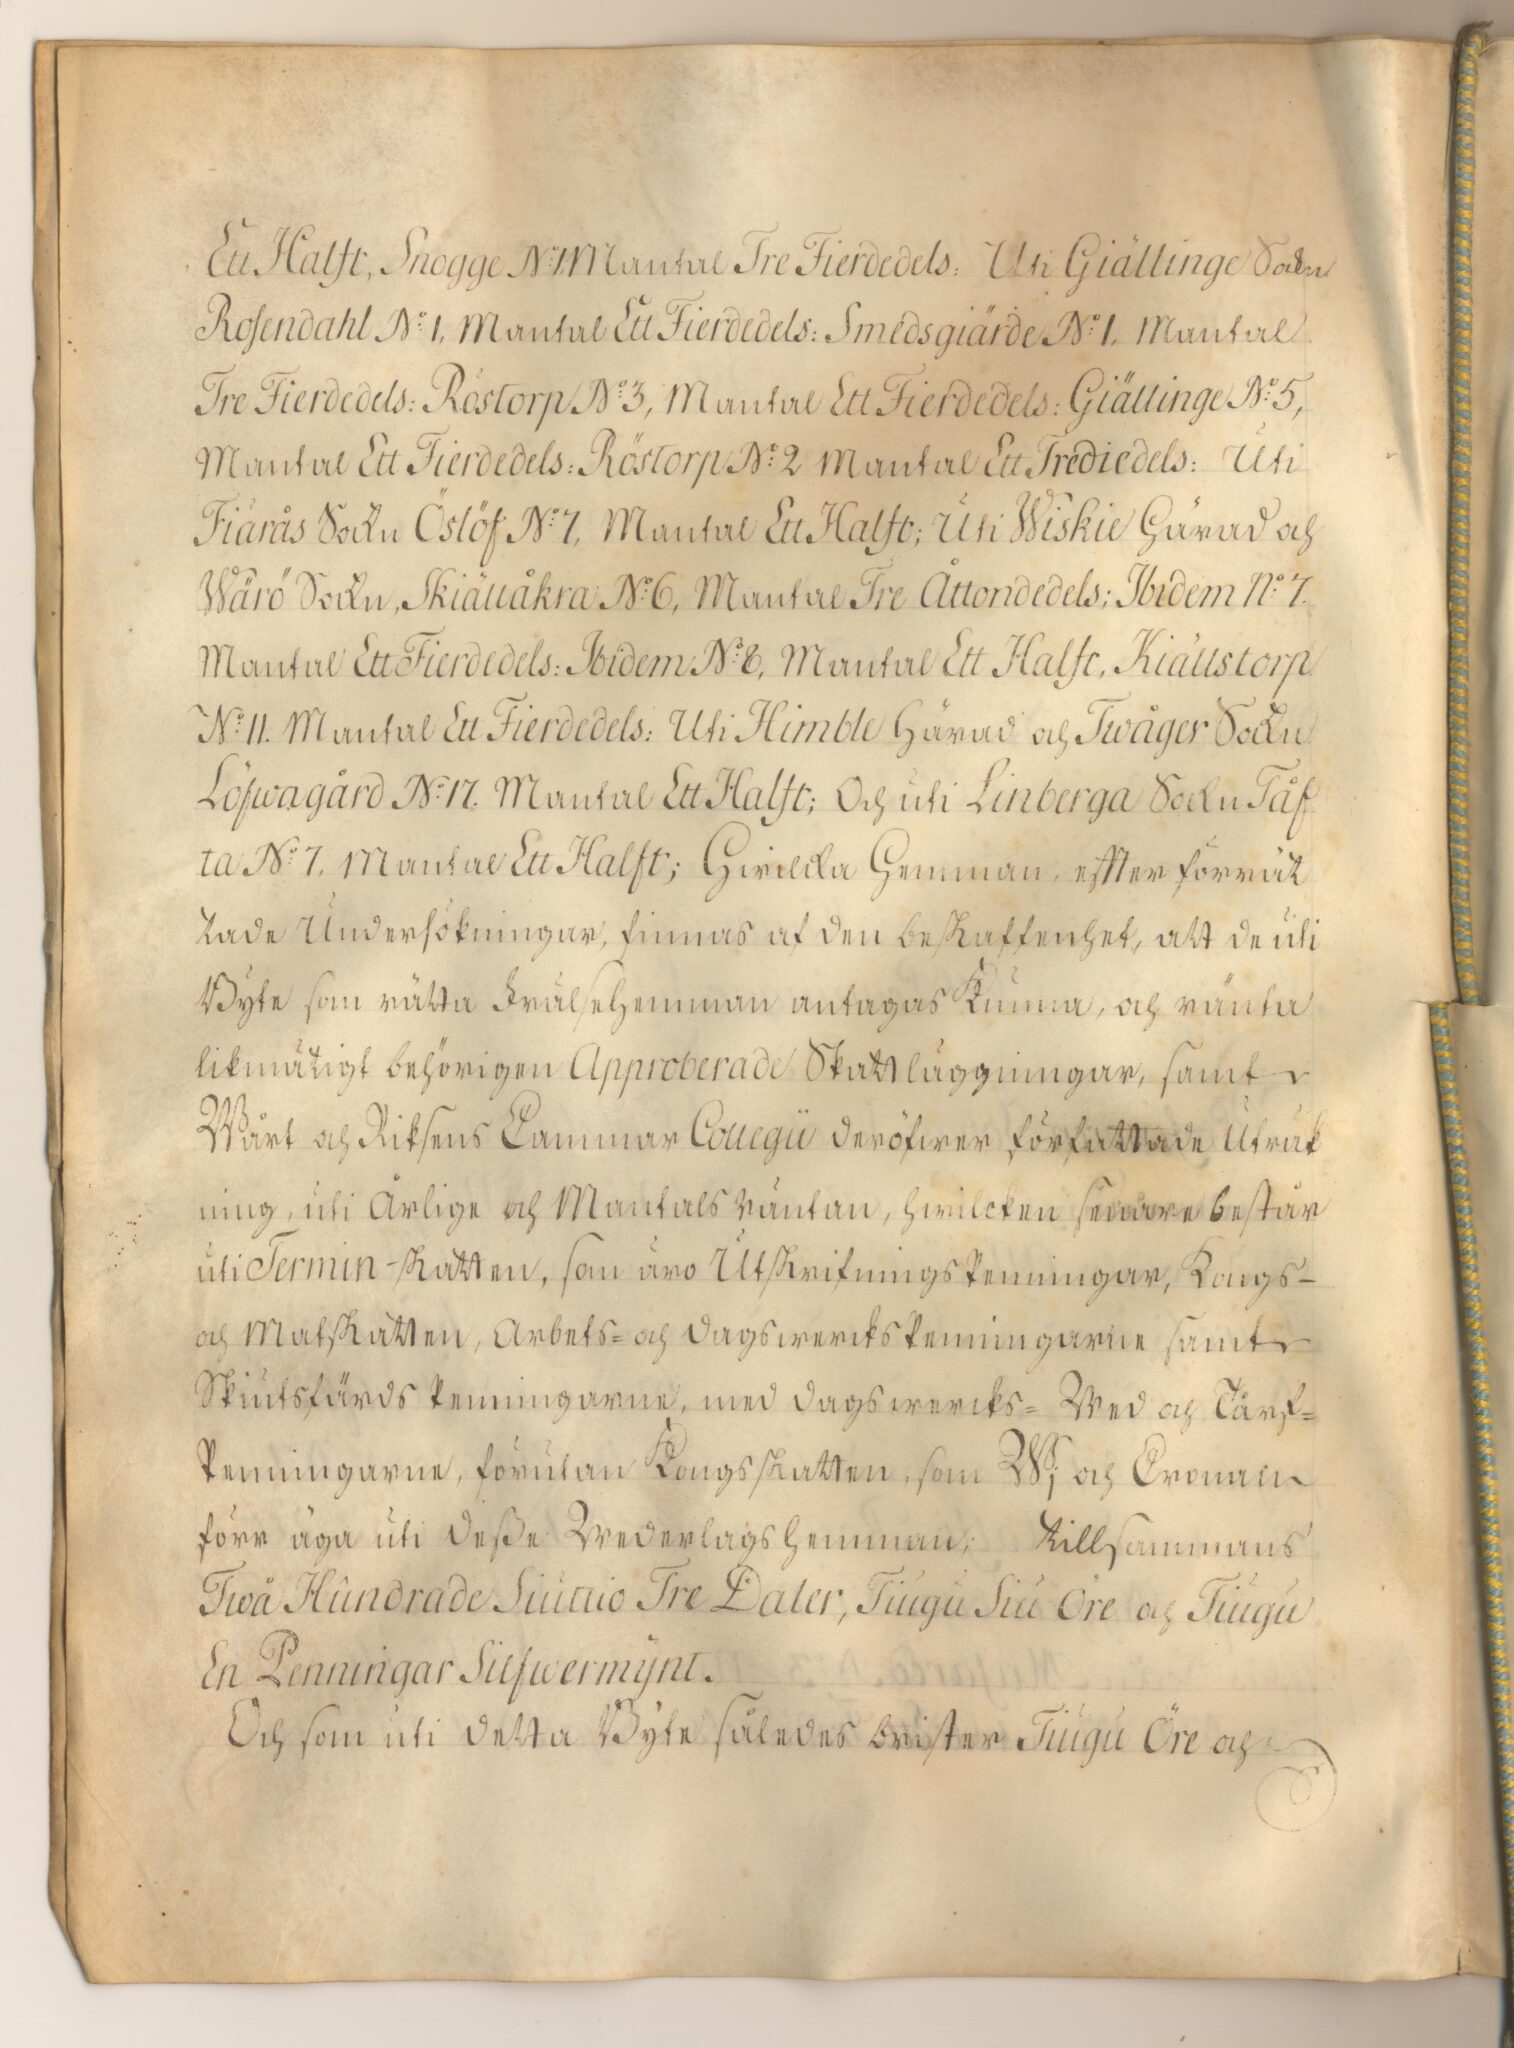 Ett Halft, Snogge N:o 1. Mantal Tre Fierdedels: Uti Giällinge Sockn
Rosendahl N:o 1, Mantal Ett Fierdedels: Smedsgiärde N:o 1. Mantal
Tre Fierdedels: Röstorp N:o 3, Mantal Ett Fierdedels: Giällinge N:o 5,
Mantal Ett Fierdedels: Röstorp N:o 2 Mantal Ett Trediedels: Uti
Fiärås Sockn Öslöf N:o 7, Mantal Ett Halft; Uti Wiskie Härad och
Wärö Sockn, Skiällåkra N:o 6, Mantal Tre Åttondedels; Ibidem N:o 7.
Mantal Ett Fierdedels: Ibidem N:o 8, Mantal Ett Halft, Kiällstorp
N:o 11. Mantal Ett Fierdedels: Uti Himble Härad och Twåger Sockn
Löfwagård N:o 17. Mantal Ett Halft; Och uti Linberga Sockn Tåf
ta N:o 7. Mantal Ett Halft; Hwilcka Hemman, effter förrät
tade Undersökningar, finnas af den beskaffenhet, att de uti
Byte som rätta Frälsehemman antagas kunna, och ränta
likmätigt behörigen Approberade Skattläggningar, samt
Wårt och Riksens Cammar Collegii deröfwer författade Uträk
ning, uti Årlige och Mantals räntan, hwilcken senare består
uti Termin-skatten, som äro Utskrifnings Penningar, Kongs-
och Matskatten, Arbets- och Dagswercks Penningarne samt
Skiutsfärds Penningarne, med Dagswercks- Wed och Tårf-
Penningarne, förutan Kongsskatten, som Wj och Cronan
förr äga uti desse Wederlags Hemman; tillsammans
Twå Hundrade Siuttio Tre Daler, Tiugu Siu Öre och Tiugu
En Penningar Silfwermynt.
Och som uti detta Byte således brister Tiugu Öre och